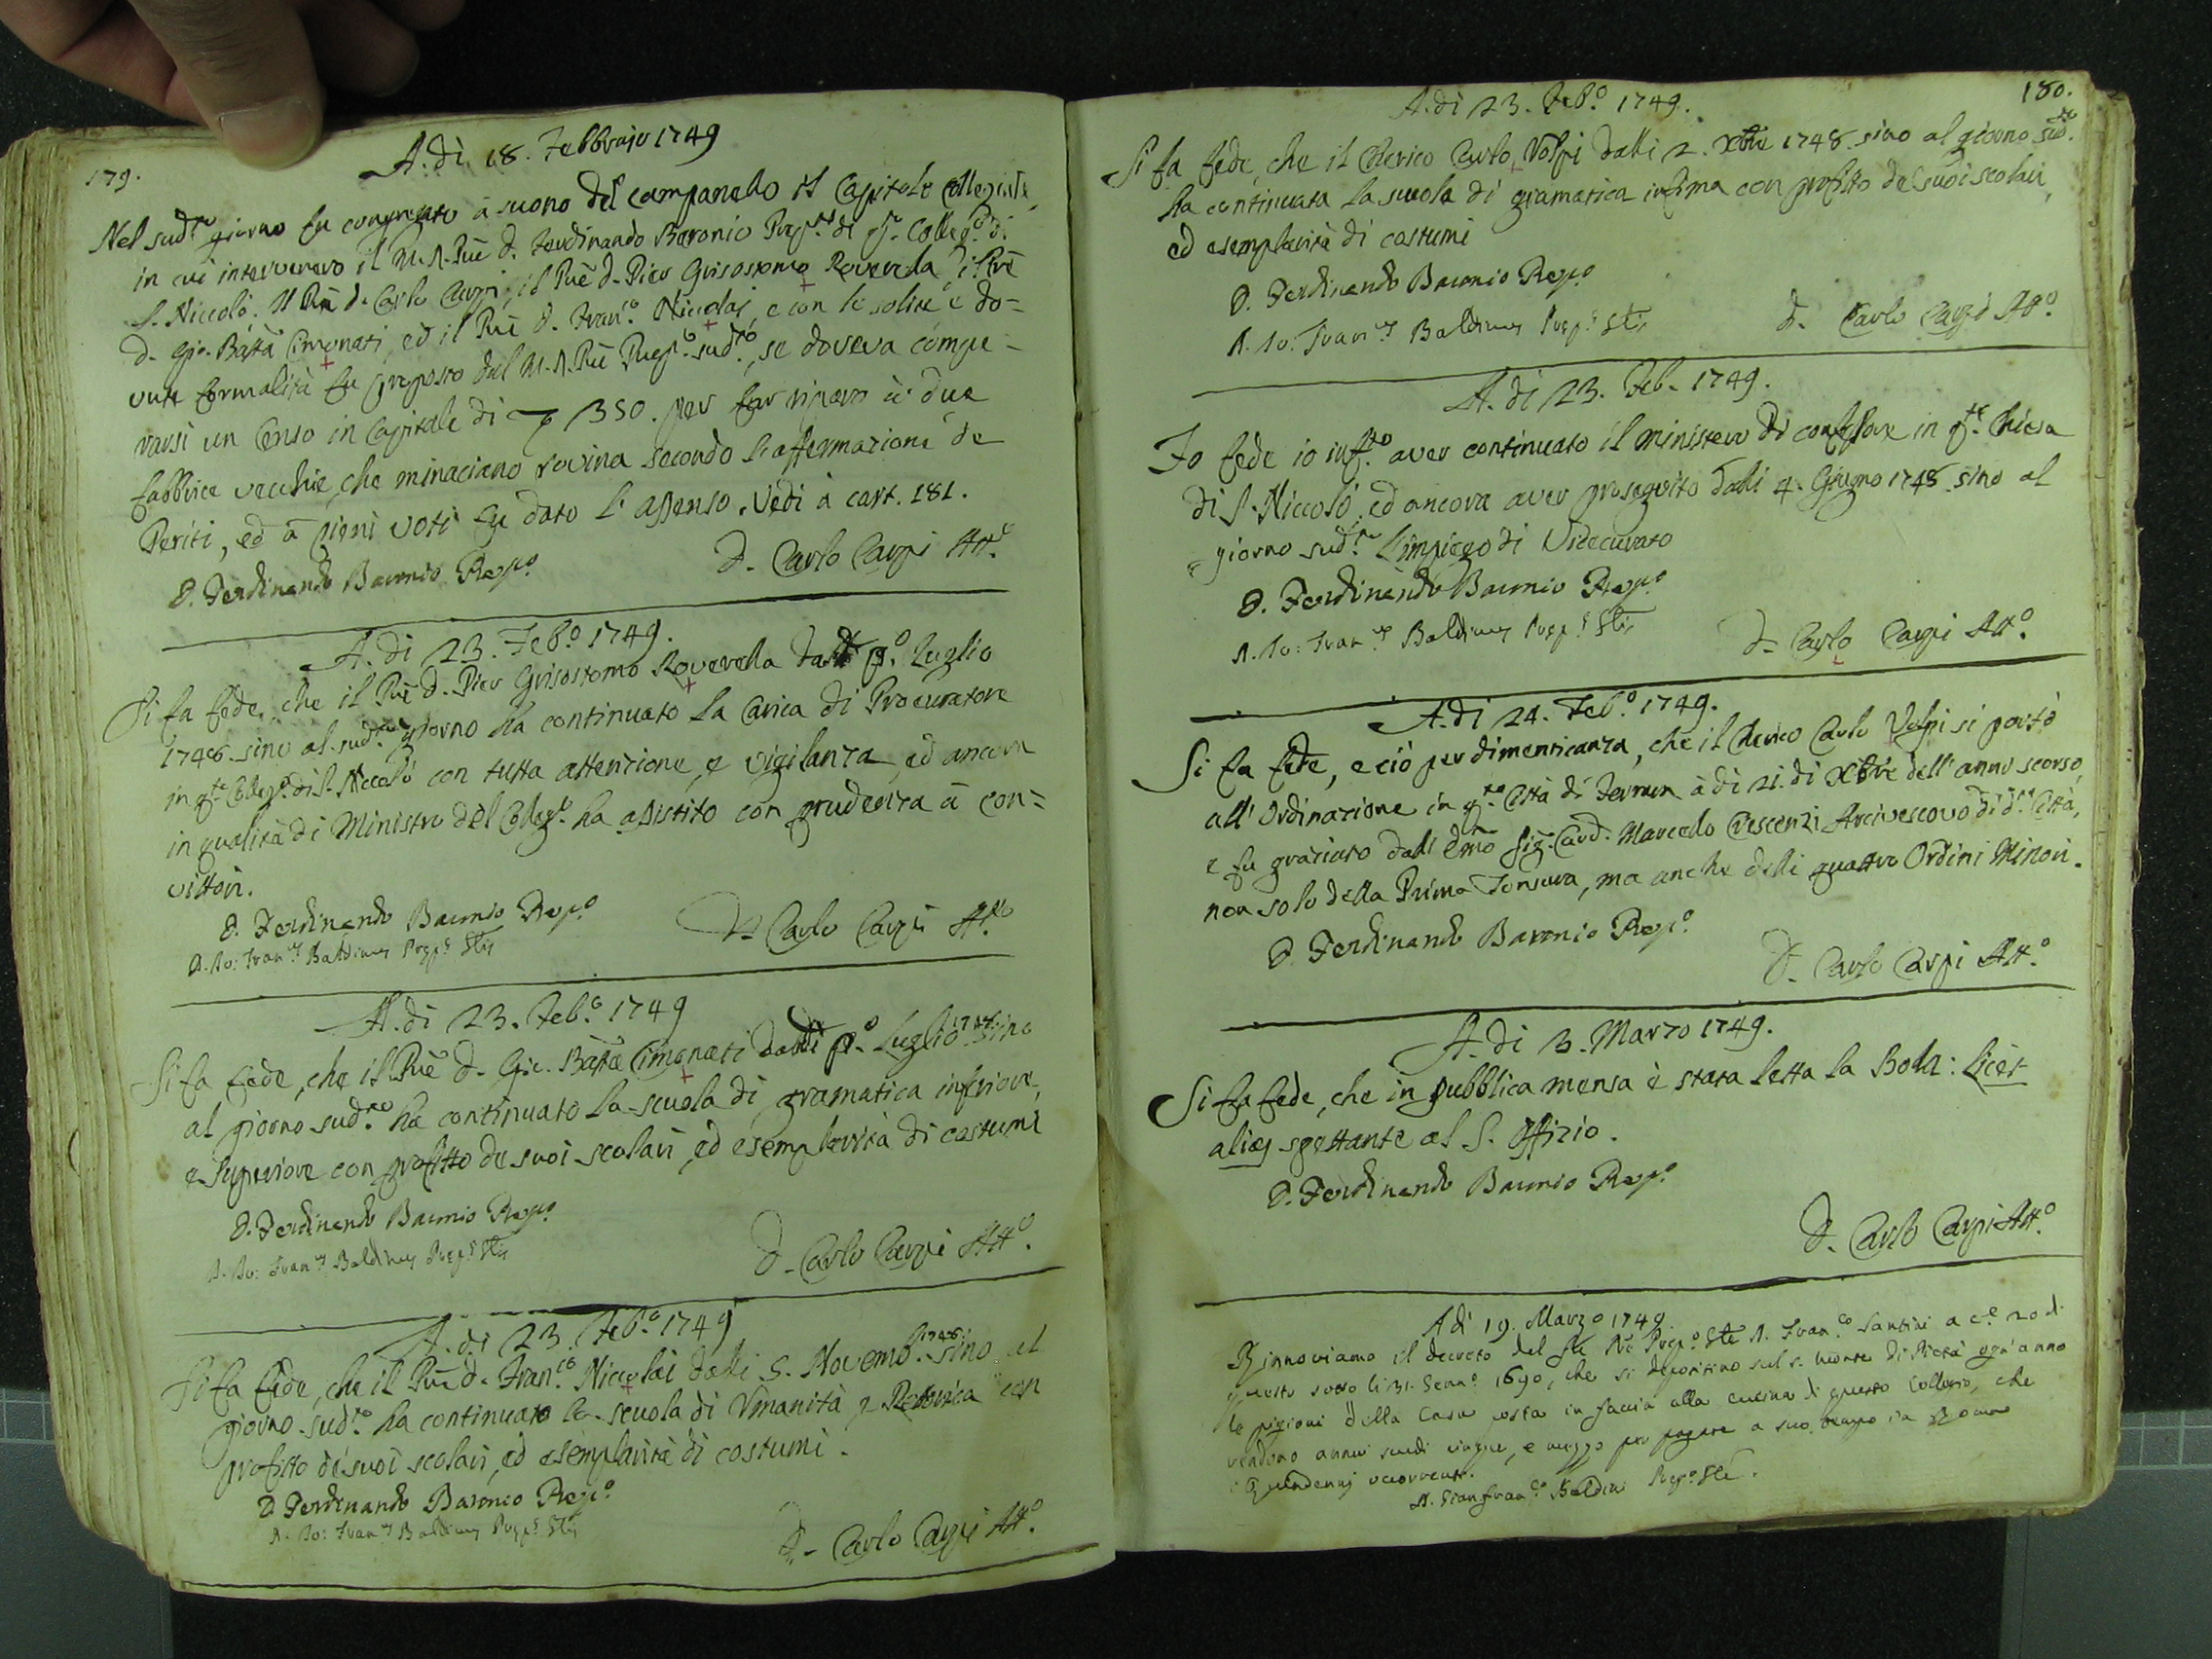 179.
A. di 18. Febbrajo 1749
Nel sud.to giorno fu congregato à suono del campanello il Capitolo Collegiale,
in cui intervenero il M. R. Pre D. Ferdinando Baronio Prep.to di q.to Colleg.o di
S. Niccolò. Il Pre D. Carlo Carpi, il Pre D. Pier Grisostomo Roverella, il Pre
D. Gio. Batta Cimonati, ed il Pre D. Fran.co Niccolai, e con le solite e do=
vute formalità fu proposto dal M. R. Pre Prep.to sud.to, se doveva compe=
rarsi un Censo in Capitale di 350. per far riparo à due
fabbrice vecchie, che minaciano rovina secondo l'affermazione de
Periti, ed à pieni voti fu dato l'assenso. Vedi à cart. 181.
D. Ferdinando Baronio Prep.o
D. Carlo Carpi Att.o
A. di 23. Feb.o 1749.
Si fa fede, che il Pre D. Pier Grisostomo Roverella dalli p.o Luglio
1748. sino al sud.to giorno ha continuato la Carica di Procuratore
in q.to Colleg.o di S. Niccolò con tutta attenzione, e vigilanza, ed ancora
in qualità di Ministro del Colleg.o ha assistito con prudenza à con=
vittori.
D. Ferdinando Baronio Prep.o
D. Carlo Carpi Att.o
D. Io: Fran.s Baldinus Prep.s Glis
A. di 23. Feb.o 1749
Si fa fede, che il Pre D. Gio. Batta Cimonati dalli p.o Luglio 1748. sino
al giorno sud.to ha continuato la scuola di gramatica inferiore,
e superiore con profitto de suoi scolari, ed esemplarità di costumi
D. Ferdinando Baronio Prep.o
D. Io: Fran.s Baldinus Prep.s Glis
D. Carlo Carpi Att.o
A. di 23. Feb.o 1749
Si fa fede, che il Pre D. Fran.co Niccolai dalli 5. Novemb. 1748. sino al
giorno sud.to ha continuato la scuola di Umanità, e Rettorica con
profitto de suoi scolari, ed esemplarità di costumi.
D. Ferdinando Baronio Prep.o
D. Io: Fran.s Baldinus Prep.s Glis
D. Carlo Carpi Att.o
180.
A. di 23. Feb.o 1749.
Si fa fede, che il Cherico Carlo Volpi dalli 2. Xbre 1748. sino al giorno sud.to
ha continuata la scuola di gramatica infima con profitto de suoi scolari,
ed esemplarità di costumi
D. Ferdinando Baronio Prep.o
D. Io. Fran.s Baldinus Prep.s Glis
D. Carlo Carpi Att.o
A. di 23. Feb. 1749.
Fo fede io inf.to aver continuato il ministero di confessore in q.ta Chiesa
di S. Niccolò, ed ancora aver proseguito dalli 4. Giugno 1748. sino al
giorno sud.to l'impiego di Vicecurato
D. Ferdinando Baronio Prep.o
D. Io: Fran.s Baldinus Prep.s Glis
D. Carlo Carpi Att.o
A. di 24. Feb.o 1749.
Si fa fede, e ciò per dimenticanza, che il Cherico Carlo Volpi si portò
all'Ordinazione in q.ta Città di Ferrara à di 21. di Xbre dell'anno scorso,
e fu graziato dall'Emo Sig. Card. Marcello Crescenzi Arcivescovo di d.ta Città,
non solo della Prima Tonsura, ma anche delli quattro Ordini Minori.
D. Ferdinando Baronio Prep.o
D. Carlo Carpi Att.o
A. di 3. Marzo 1749.
Si fa fede, che in pubblica mensa è stata letta la Bolla: Licet
alias spettante al S. Offizio.
D. Ferdinando Baronio Prep.o
D. Carlo Carpi Att.o
Adi 19. Marzo 1749
Rinnoviamo il decreto del Pre Prep.o Gle D. Fran.co Santini a c.e 20 di
questo sotto li 31. Genn.o 1690, che si depositino sul S. Monte di Pietà ogn'anno
le pigioni della Casa posta in faccia alla cucina di questo Collegio, che
rendono annui scudi cinque, e mezzo per pagare a suo tempo in Roma
i Quindennj occorrenti.
D. Gianfran.co Baldini Prep.o Gle.